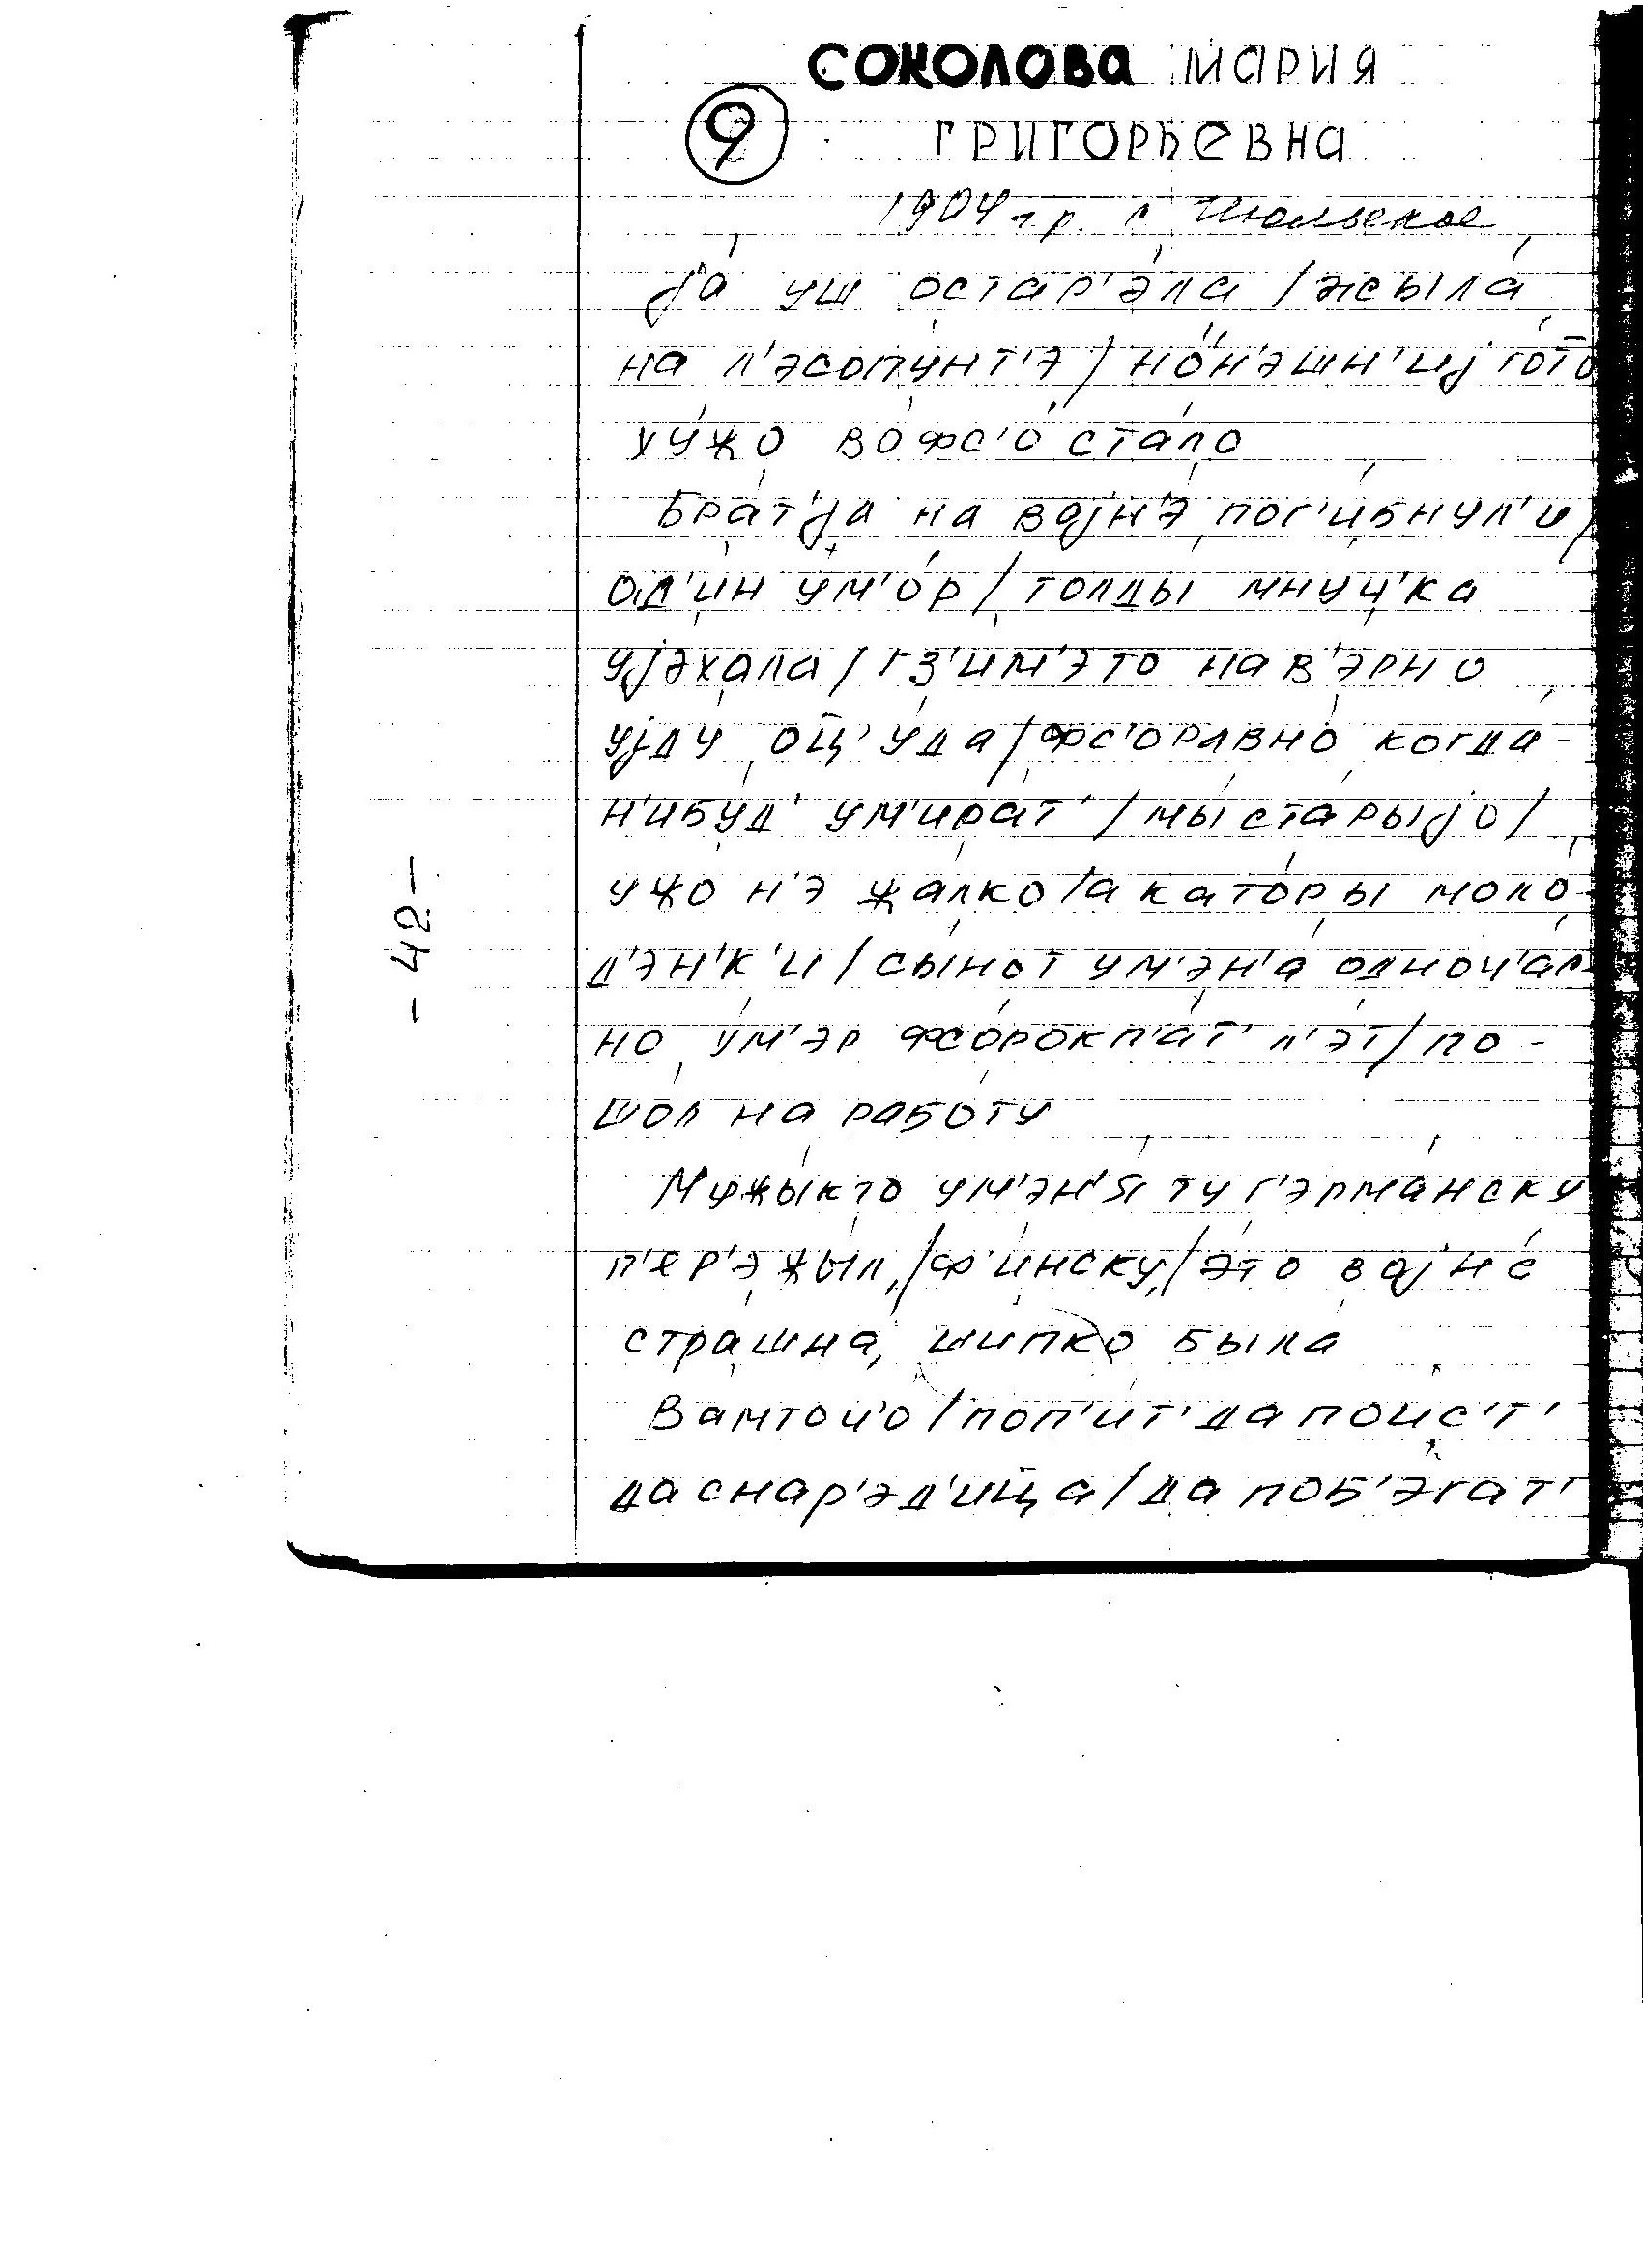 СОКОЛОВА МАРИЯ
9 ГРИГОРЬЕВНА
1904 г.р. с. Июльское
jа́ уш остар'э́ла / жыла́
на л'эсопу́нт'э / но́н'эшн'иj го́то
ху́жо во фс'о́ ста́ло
Бра́т'jа на воjн'э́ пог'и́бнул'и /
од'и́н у́м'о́р / толды́ мну́ч'ка
уjэ́хала / г з'им'э́ то нав'э́рно
уjду́ оц'у́да / фс'оравно́ когда́-
н'ибу́д' ум'ира́т' / мы́ ста́рыjо /
ужо н'э жа́лко / а като́ры моло́-
д'эн'к'и / сы́нот ум'эн'а́ одноч'а́с
но у́м'эр фсо́рокп'а́т' л'эт / по-
шо́л на рабо́ту
Мужы́кто ум'эн'я́ ту г'эрма́нску
п'ер'эжы́л, / ф'и́нску, / э́то воjне́
стра́шна, шипко была́
Вамточ'о / поп'и́т' да поис'т'
да снар'эд'и́ца / да поб'э́гат'
- 42 -